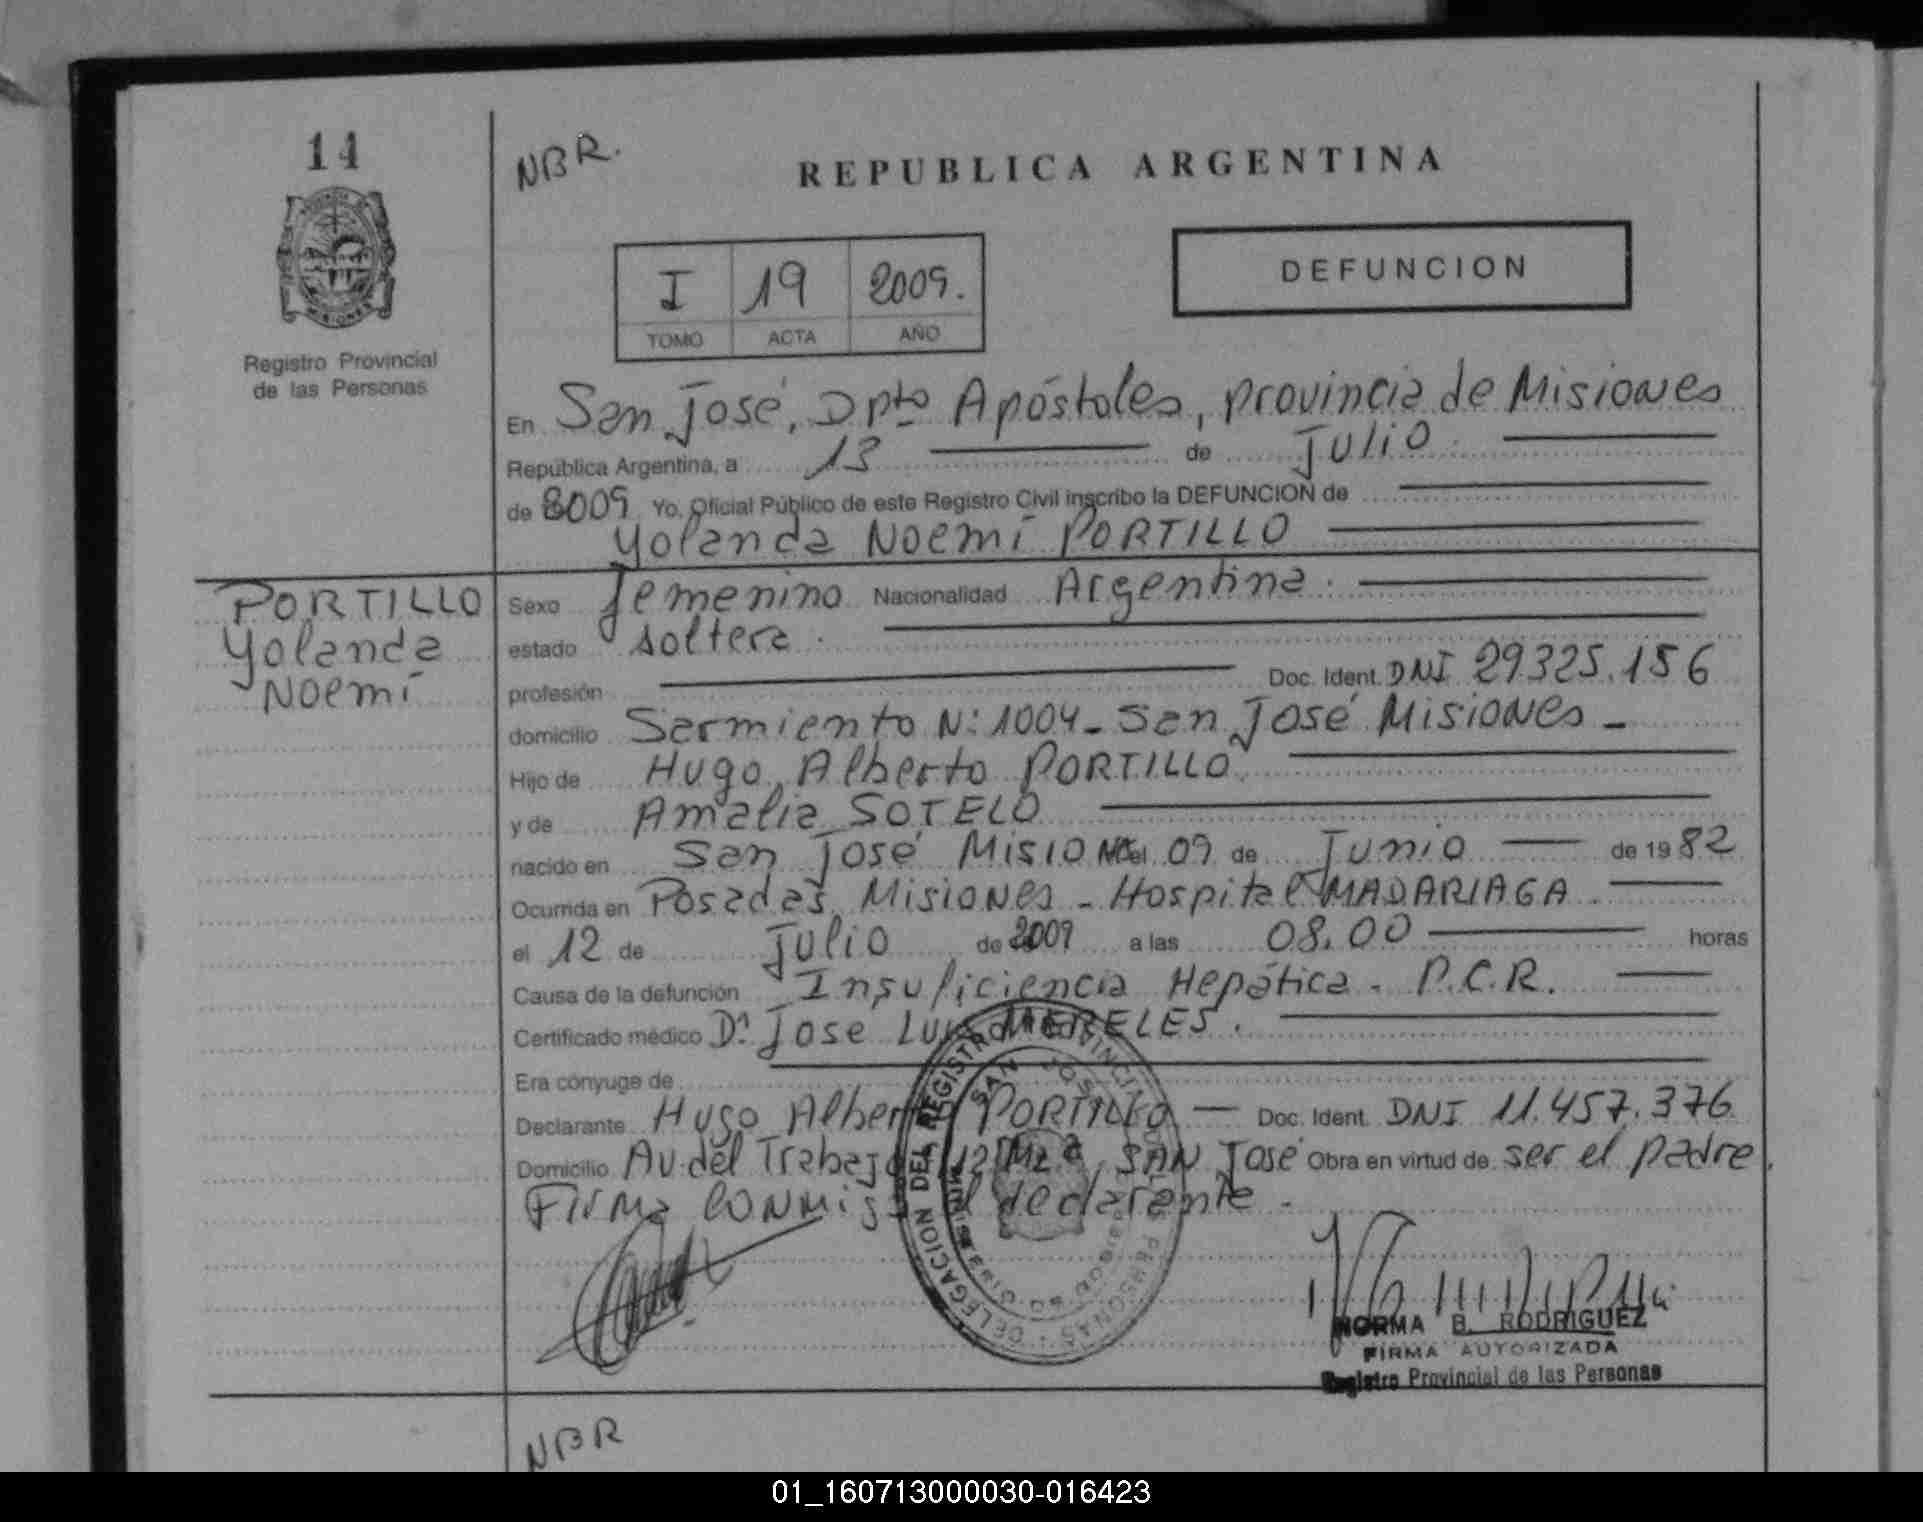 14
NBR.
REPUBLICA ARGENTINA
PROVINCIA DE MISIONES
Registro Provincial
de las Personas
I 19 2009.
TOMO ACTA AÑO
DEFUNCION
En San José, Dpto Apóstoles, provincia de Misiones
Republica Argentina, a 13 de Julio
de 2009 Yo, Oficial Público de este Registro Civil inscribo la DEFUNCION de
Yolanda Noemí PORTILLO
PORTILLO
Yolanda
Noemí
Sexo femenino Nacionalidad Argentina.
estado soltera.
profesión Doc. Ident. DNI 29325.156
domicilio Sarmiento N: 1004 - San José Misiones -
Hijo de Hugo Alberto PORTILLO
y de Amalia SOTELO
nacido en San José Misiones el 09 de Junio de 1982
Ocurrida en Posadas Misiones - Hospital MADARIAGA.
el 12 de Julio de 2009 a las 08.00 horas
Causa de la defunción Insuficiencia Hepática. P.C.R.
Certificado médico Dr. Jose Luis MERELES.
Era cónyuge de
Declarante Hugo Alberto PORTILLO — Doc. Ident. DNI 11.457.376
Domicilio Av. del Trabajo SAN José Obra en virtud de ser el padre.
Firma conmigo el declarante.
DELEGACION DEL REGISTRO PROVINCIAL DE LAS PERSONAS
SAN JOSE
MISIONES
NORMA B. RODRIGUEZ
FIRMA AUTORIZADA
Registro Provincial de las Personas
NBR
01_160713000030-016423